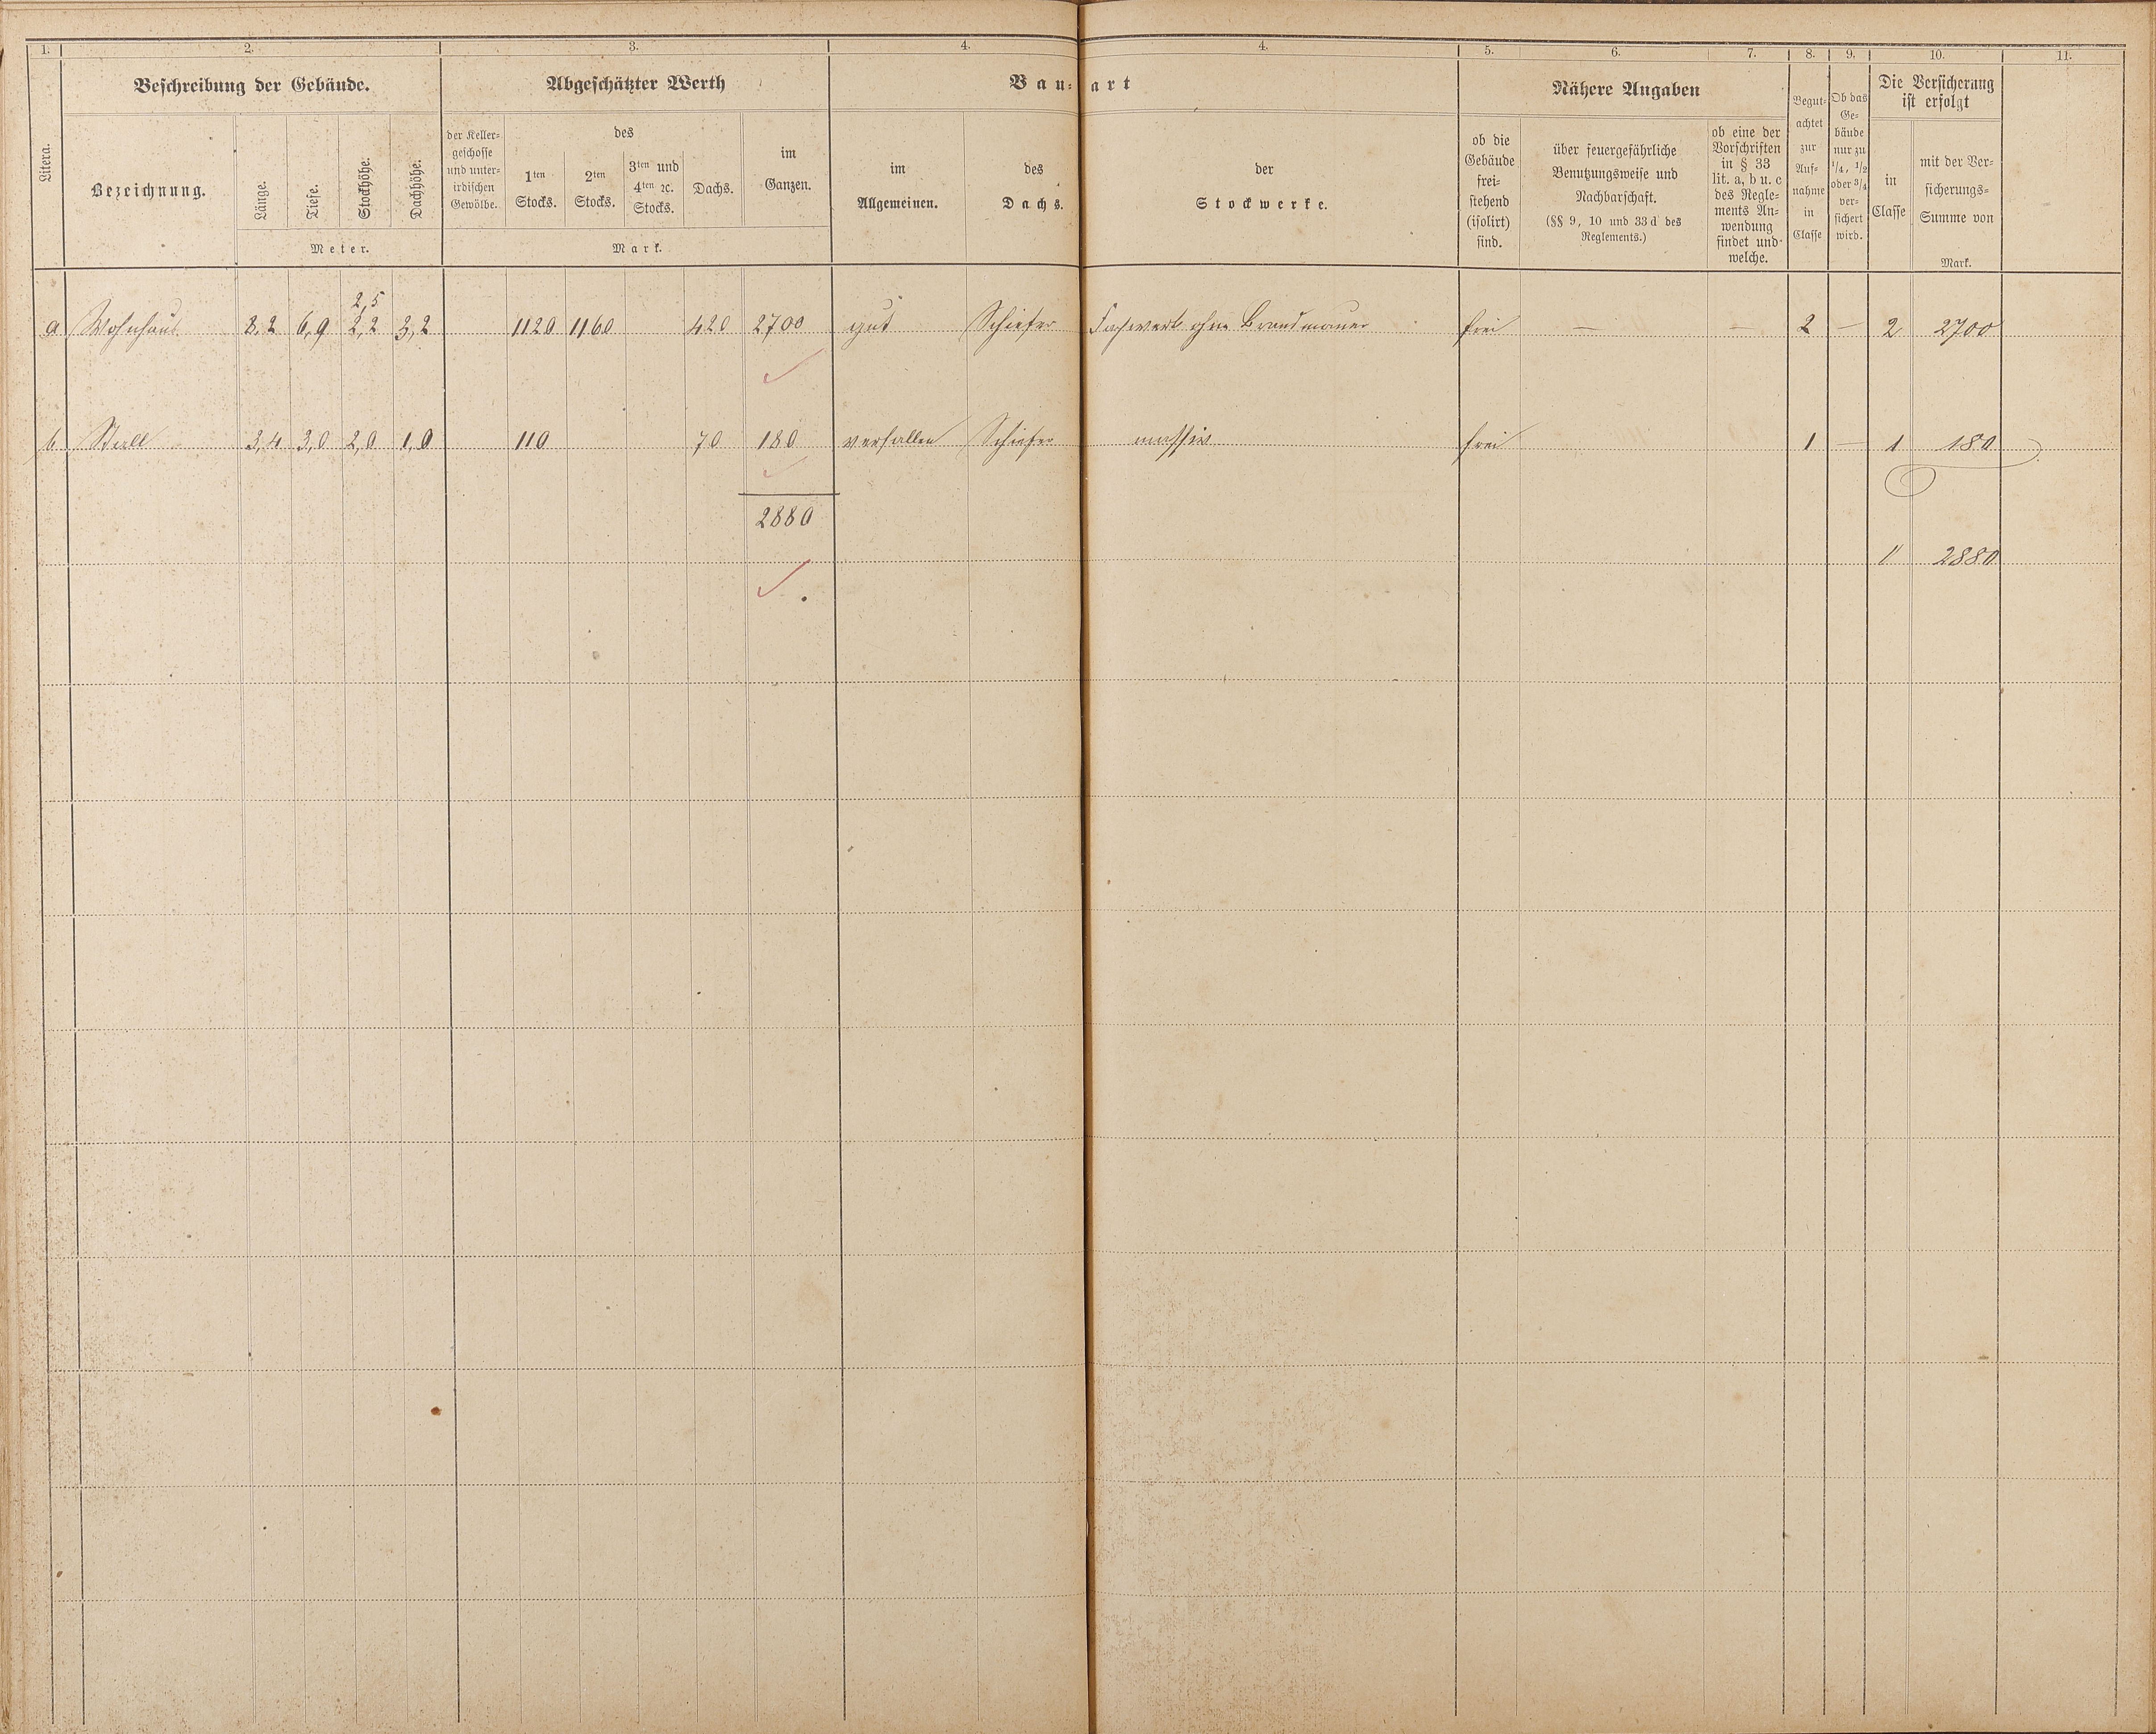 1. 2. 3. 4. 4. 5. 6. 7. 8. 9. 10. 11.
Litera.
Beschreibung der Gebäude.
Bezeichnung.
Länge.
Tiefe.
Stockhöhe.
Dachhöhe.
Meter.
Abgeschätzter Werth
der Keller-
geschosse
und unter-
irdischen
Gewölbe.
des
1ten
Stocks.
2ten
Stocks.
3ten und
4ten ꝛc.
Stocks.
Dachs.
im
Ganzen.
Mark.
Bau-art
im
Allgemeinen.
des
Dachs.
der
Stockwerke.
Nähere Angaben
ob die
Gebäude
frei-
stehend
(isolirt)
sind.
über feuergefährliche
Benutzungsweise und
Nachbarschaft.
(§§ 9, 10 und 33d des
Reglements.)
ob eine der
Vorschriften
in § 33
lit. a, b u. c
des Regle-
ments An-
wendung
findet und
welche.
Begut-
achtet
zur
Auf-
nahme
in
Classe
Ob das
Ge-
bäude
nur zu
1/4, 1/2
oder 3/4
ver-
sichert
wird.
Die Versicherung
ist erfolgt
in
Classe
mit der Ver-
sicherungs-
Summe von
Mark.
2,5
a Wohnhaus 8,2 6,9 2,2 3,2 1120 1160 420 2700 gut Schiefer Fachwerk ohne Brandmauer frei — — 2 — 2 2700
b Stall 3,4 3,0 2,0 1,0 110 70 180 verfallen Schiefer massiv frei 1 — 1 180
2880
2880